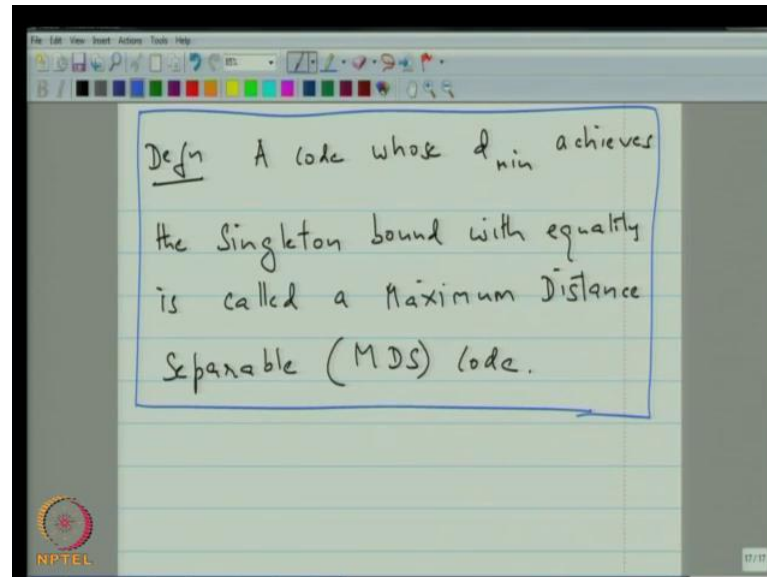 File Edit View Insert Actions Tools Help
B I
Defn A code whose d min achieves
the Singleton bound with equality
is called a Maximum Distance
Separable (MDS) code.
NPTEL
17/17